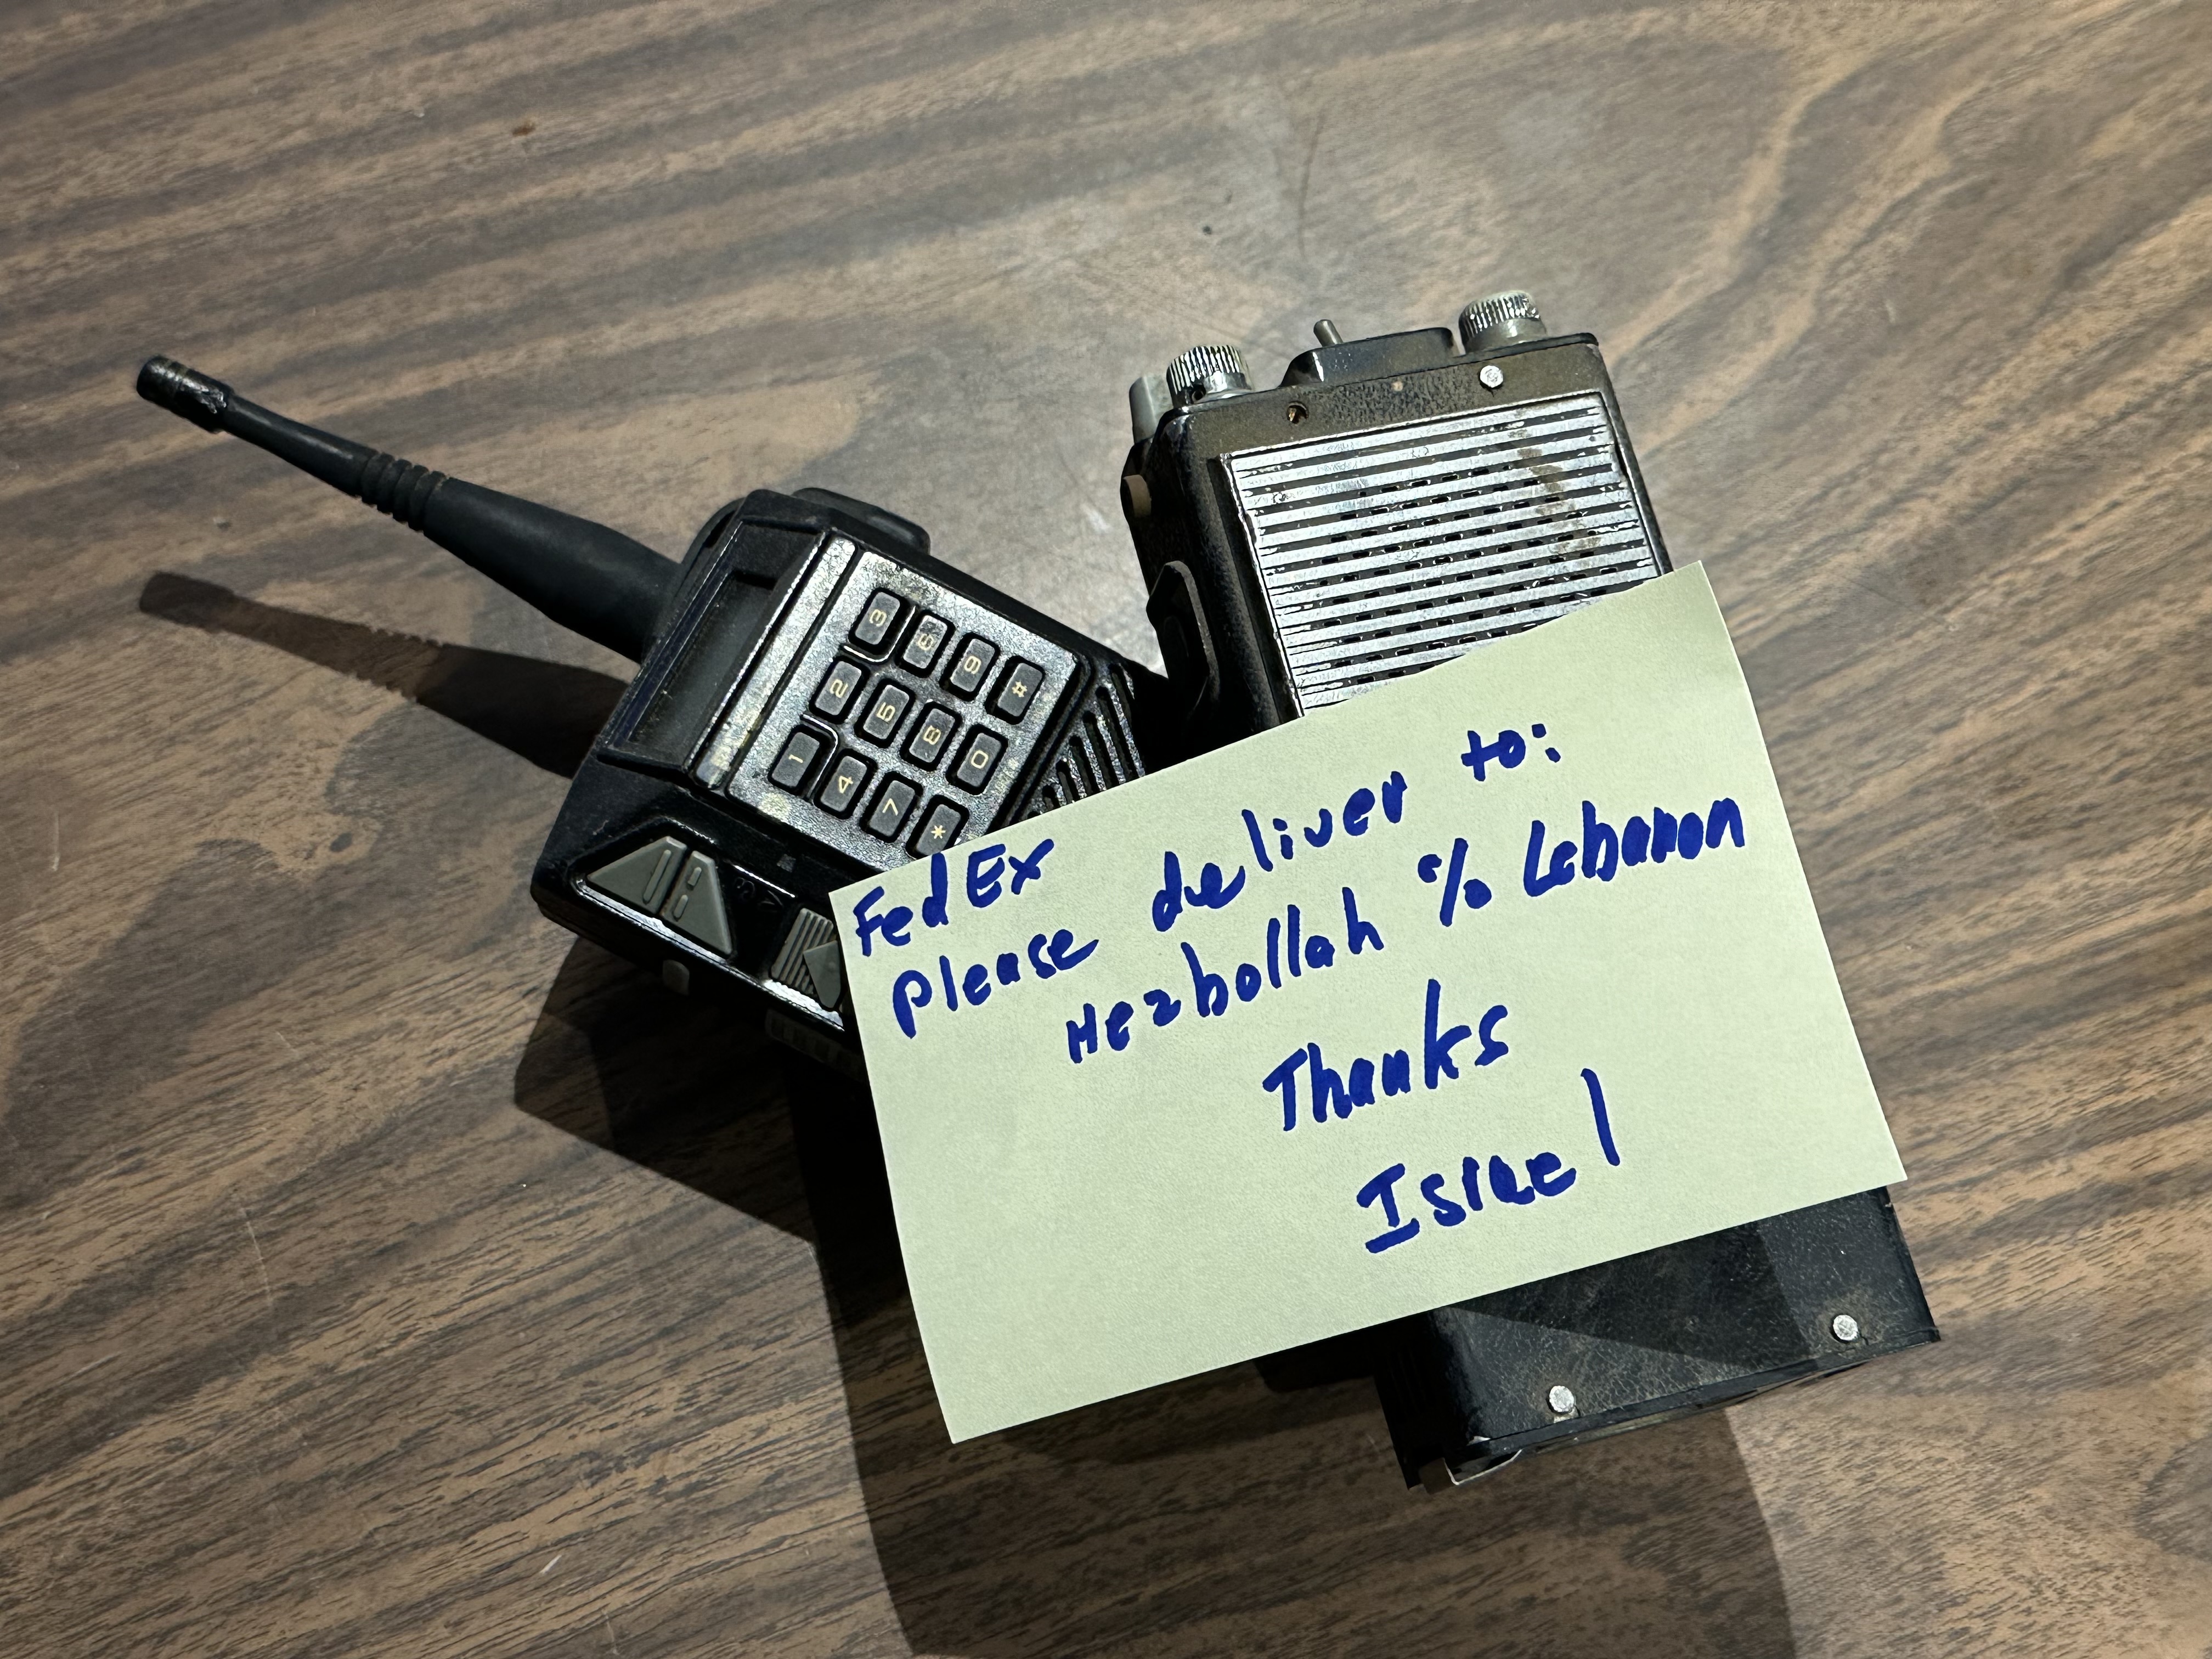 FedEx
please deliver to:
Hezbollah % Lebanon
Thanks
Israel
3 6 9 #
2 5 8 0
1 4 7 *